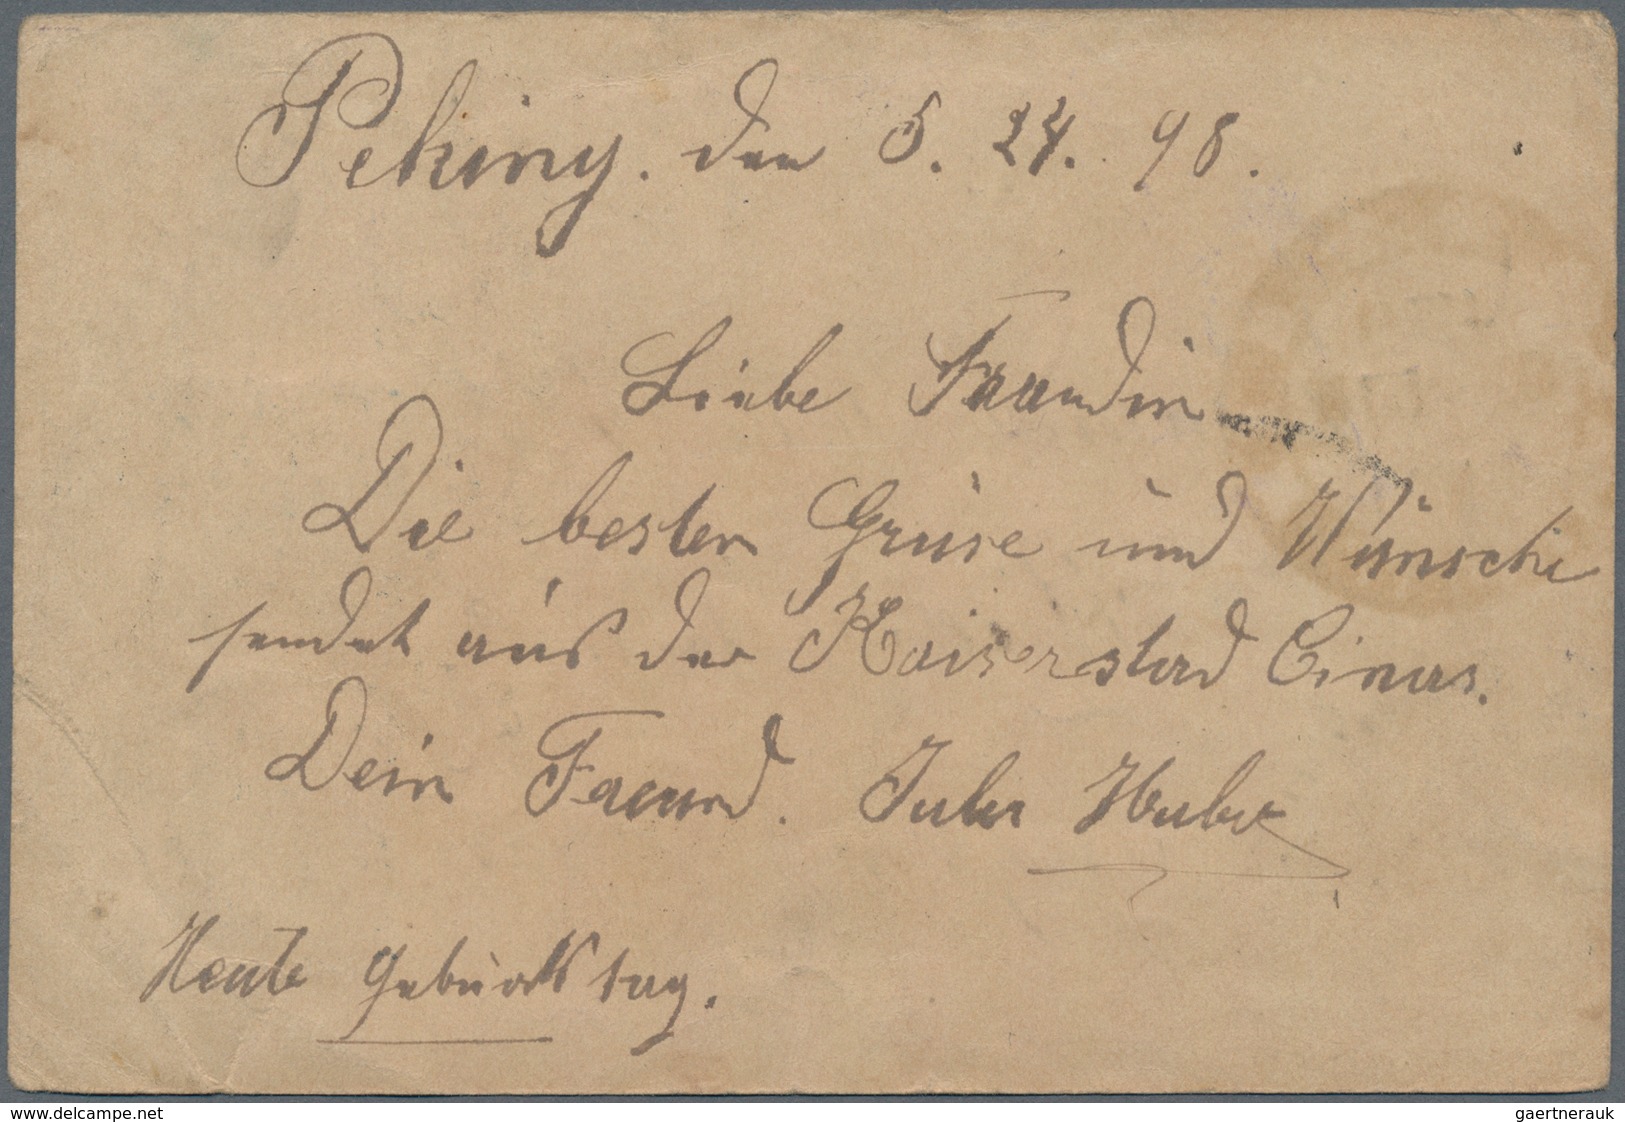 Peking. den 5. 24. 98.
Liebe Freundin
Die besten Grüse und Wünsche
sendet aus der Kaiserstad Cinas.
Dein Freund. Huber
Heute Geburtstag.
www.delcampe.net
gaertnerauk